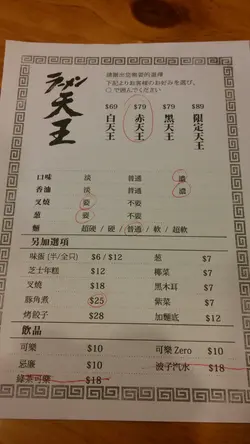 ラーメン
天王
請圈出您需要的選擇
下記よりお客様のお好みを選び、
○で囲んでください
$69 $79 $79 $89
白天王 赤天王 黒天王 限定天王
口味 淡 普通 濃
香油 淡 普通 濃
叉燒 要 不要
蔥 要 不要
麵 超硬 / 硬 / 普通 / 軟 / 超軟
另加選項
味蛋 (半/全只) $6 / $12 蔥 $7
芝士年糕 $12 椰菜 $7
叉燒 $18 黑木耳 $7
豚角煮 $25 紫菜 $7
烤餃子 $28 加麵底 $12
飲品
可樂 $10 可樂 Zero $10
忌廉 $10 波子汽水 $18
綠茶可樂 $18